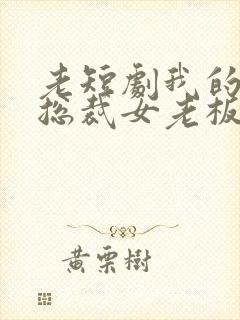 老短劇我的
總裁女老板
黄栗樹